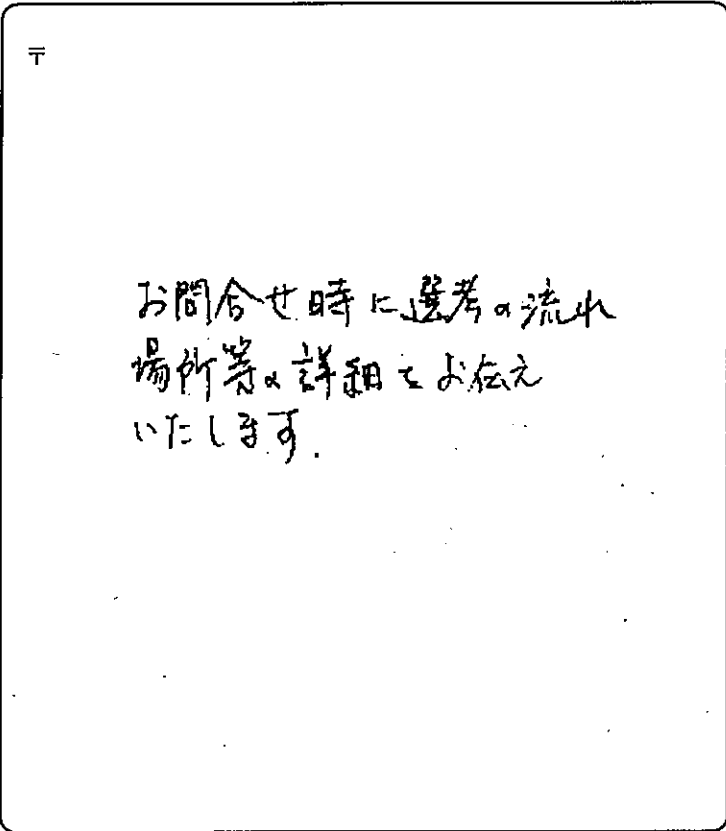 〒
お問合せ時に選考の流れ
場所等の詳細をお伝え
いたします.